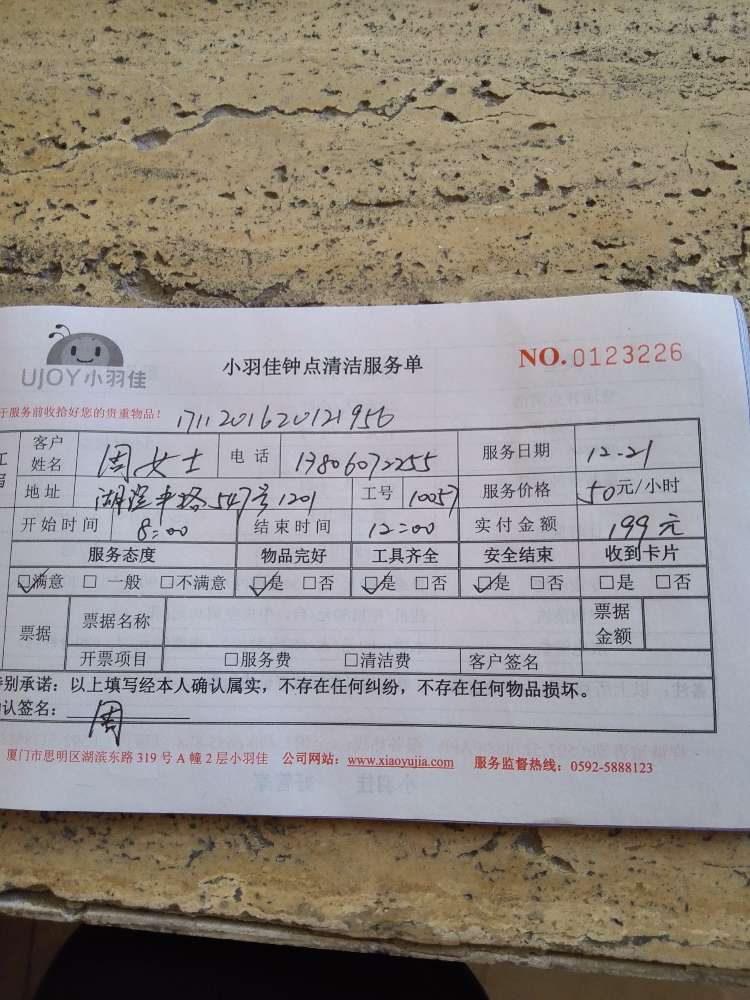 UJOY小羽佳
小羽佳钟点清洁服务单
NO.0123226
于服务前收拾好您的贵重物品!
1711201620121956
客户姓名 周女士 电话 13806072255 服务日期 12-21
地址 547号1201 工号 10057 服务价格 50元/小时
开始时间 8:00 结束时间 12:00 实付金额 199元
服务态度 物品完好 工具齐全 安全结束 收到卡片
☑满意 □一般 □不满意 ☑是 □否 ☑是 □否 ☑是 □否 □是 □否
票据 票据名称 票据金额
开票项目 □服务费 □清洁费 客户签名
特别承诺:以上填写经本人确认属实,不存在任何纠纷,不存在任何物品损坏。
确认签名:周
厦门市思明区湖滨东路319号A幢2层小羽佳 公司网站:www.xiaoyujia.com 服务监督热线:0592-5888123